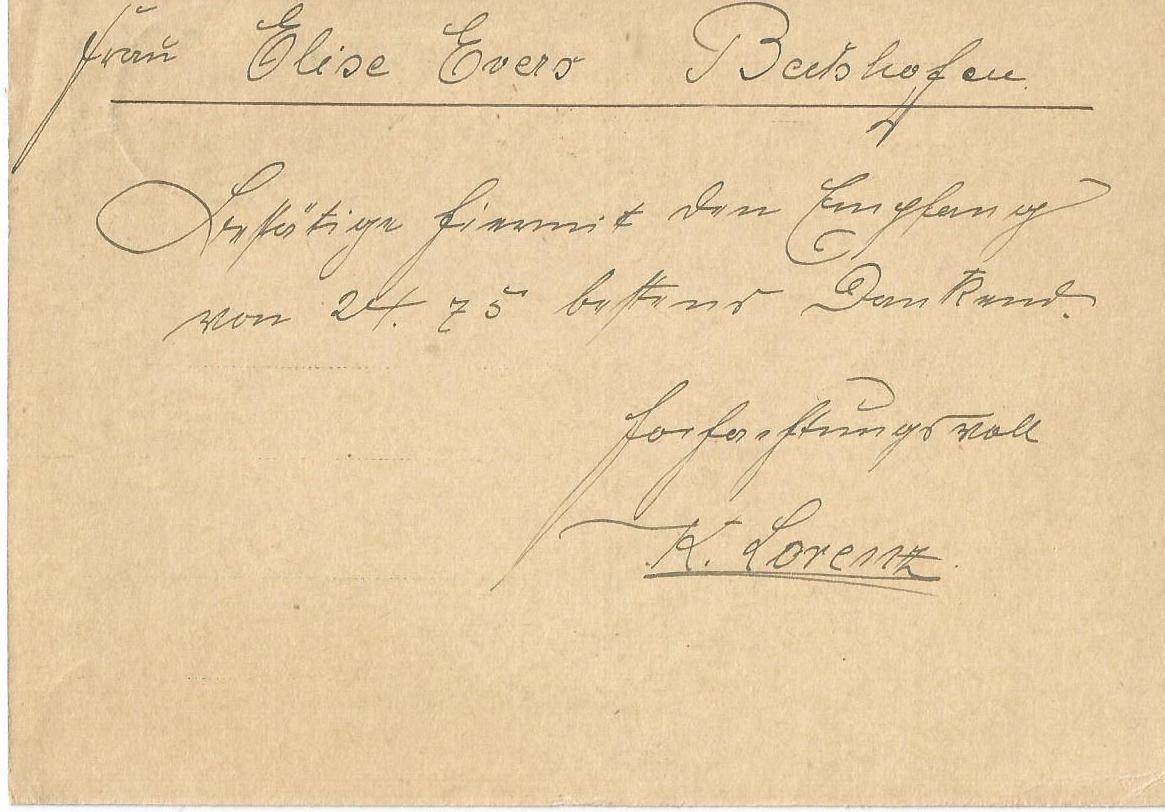 Frau Elise Evers Beidshofen
Bestätige hiermit den Empfang
von 24.75 bestens Dankend.
Hochachtungsvoll
K. Lorenz